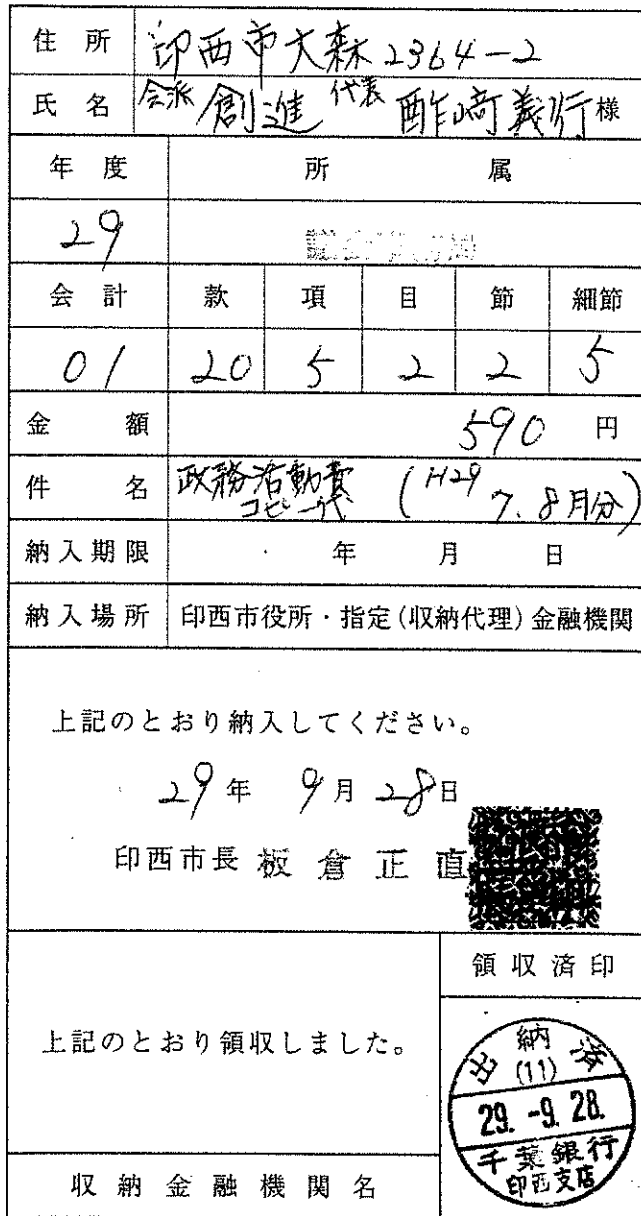 住所 印西市大森2364-2
氏名 会派 創進 代表 酢﨑義行様
年度 所属
29
会計 款 項 目 節 細節
01 20 5 2 2 5
金額 590円
件名 政務活動費 コピー代 (H29 7.8月分)
納入期限 年 月 日
納入場所 印西市役所・指定(収納代理)金融機関
上記のとおり納入してください。
29年 9月 28日
印西市長 板倉正直
領収済印
上記のとおり領収しました。
出納済
(11)
29.-9.28.
千葉銀行
印西支店
収納金融機関名